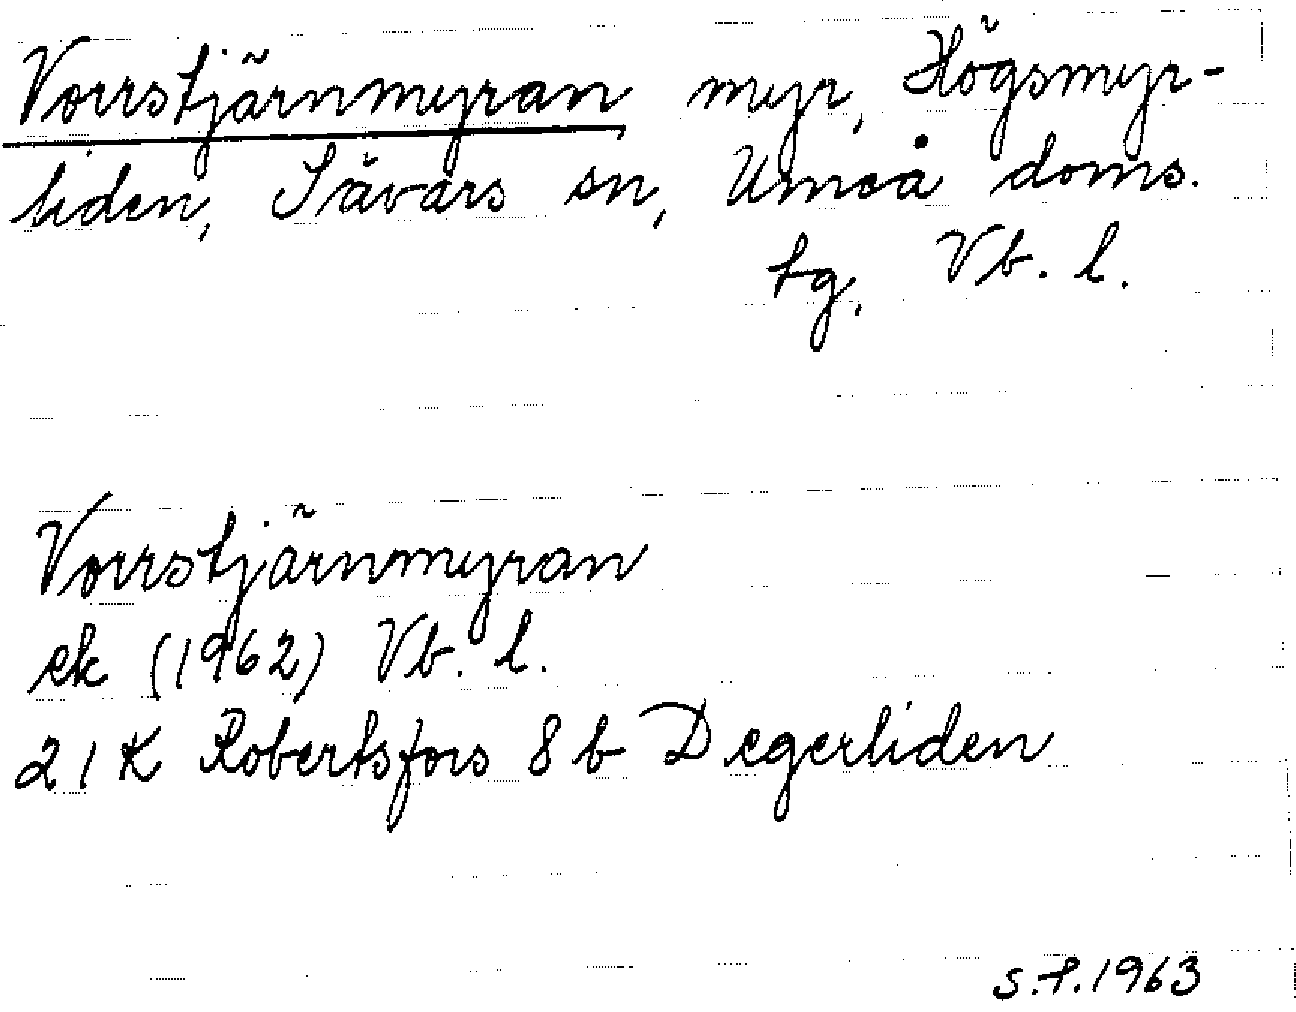 Vorrstjärnmyran myr, Högsmyr-
liden, Sävars sn, Umeå doms.
tg. Vb. l.
Vorrstjärnmyran
ek (1962) Vb. l.
21 K Robertsfors 8 b Degerliden
S.P. 1963